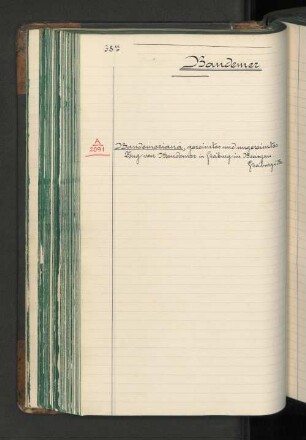 38
Bandemer
A
2091
Bandemeriana, gereimtes und ungereimtes
Zug von Bandemer in Freiburg im Breisgau
Freiburg